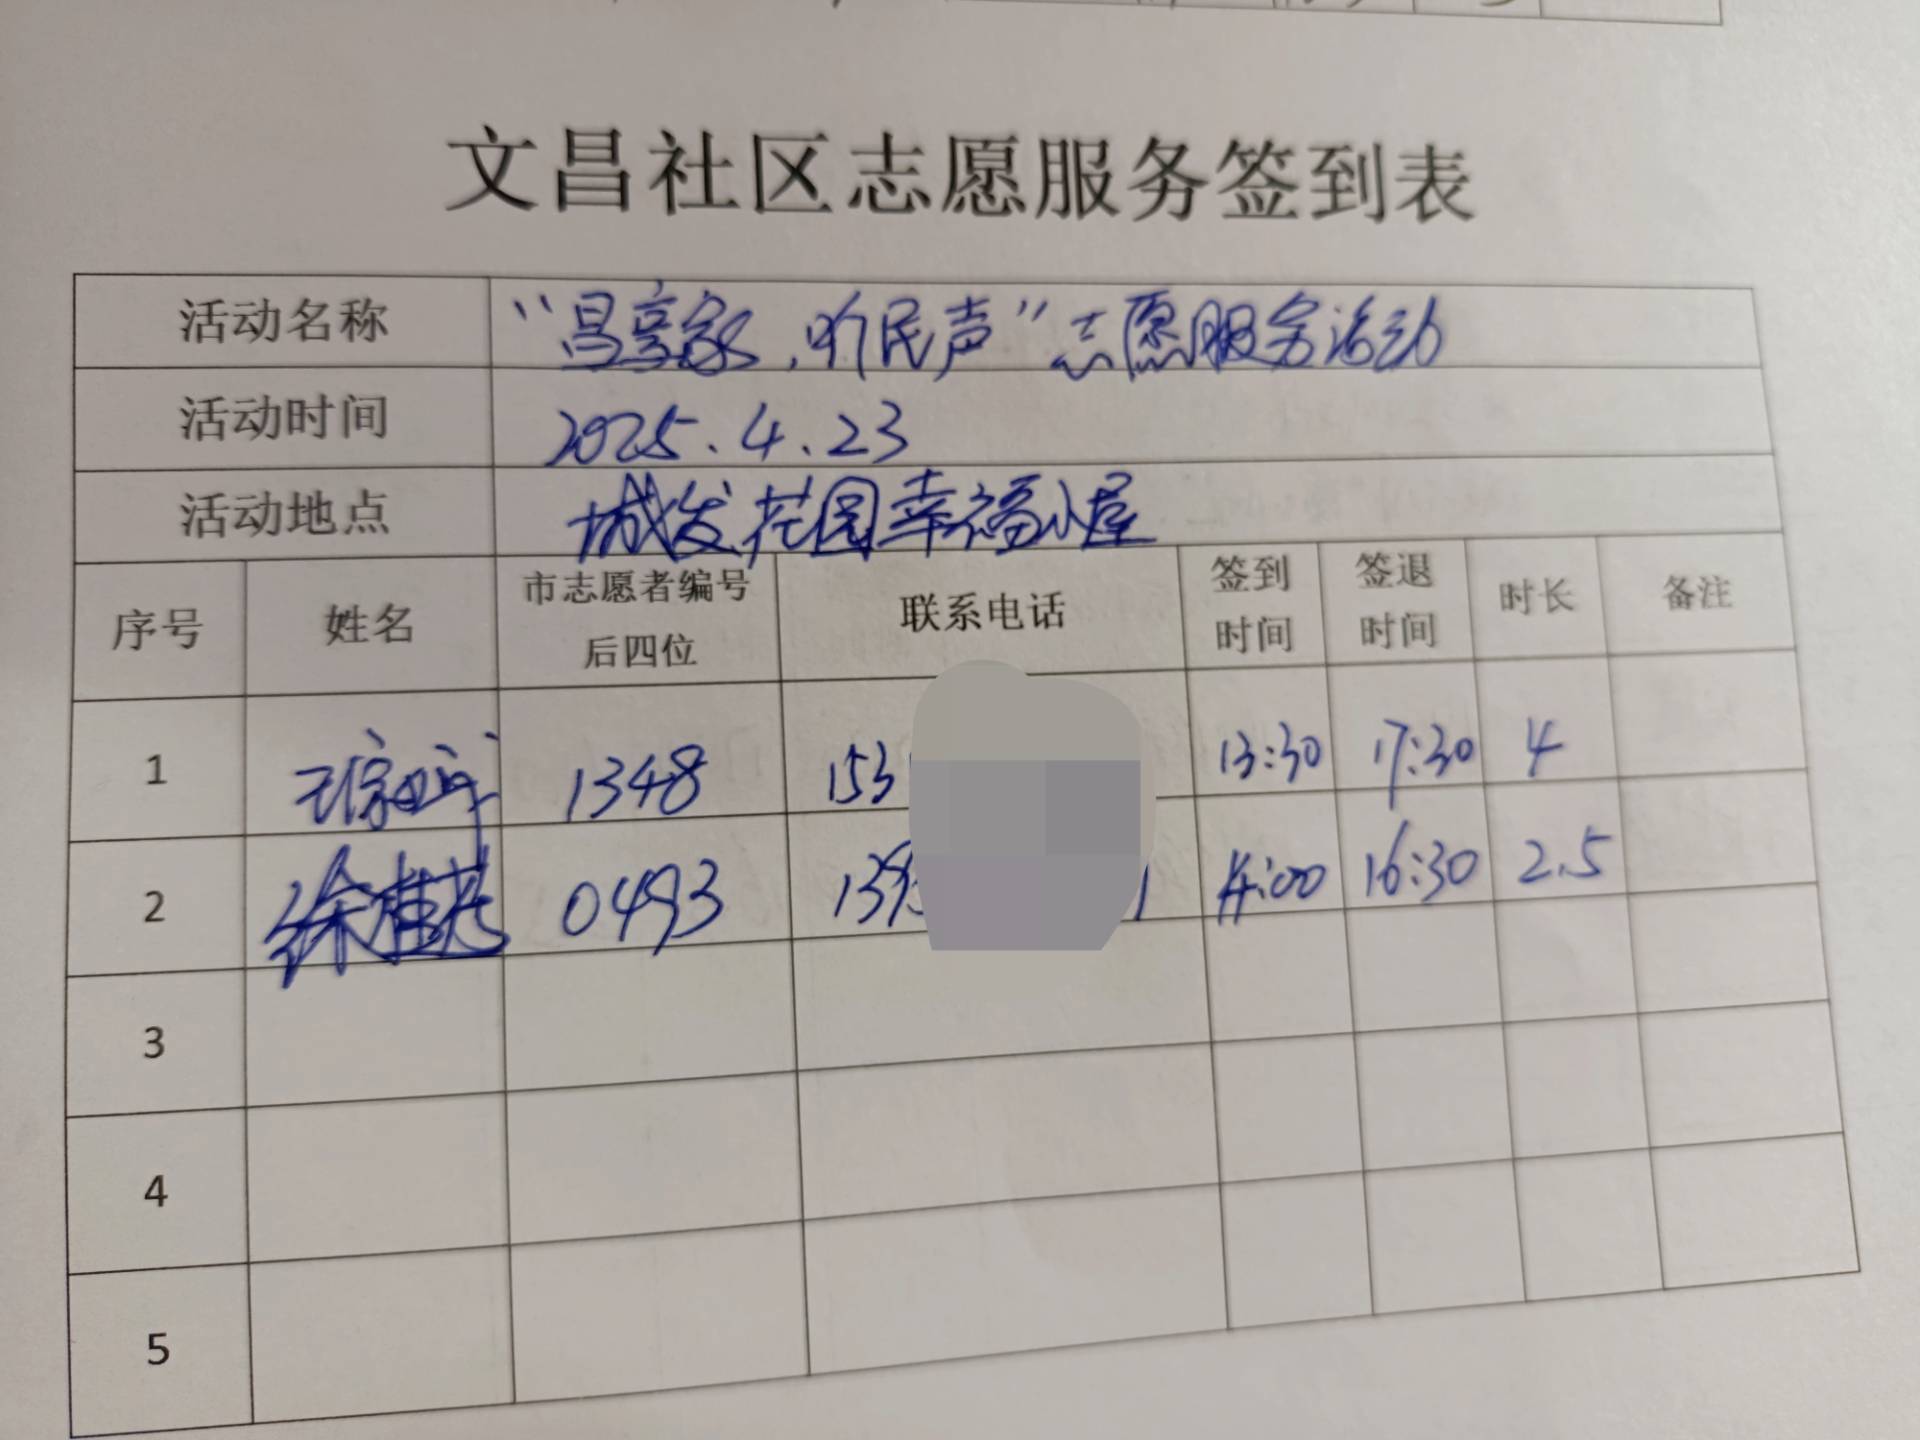 文昌社区志愿服务签到表
活动名称 “昌享家,听民声”志愿服务活动
活动时间 2025.4.23
活动地点 城发花园幸福小屋
序号 姓名 市志愿者编号后四位 联系电话 签到时间 签退时间 时长 备注
1 1348 153 13:30 17:30 4
2 徐桂芳 0493 139 1 14:00 16:30 2.5
3
4
5